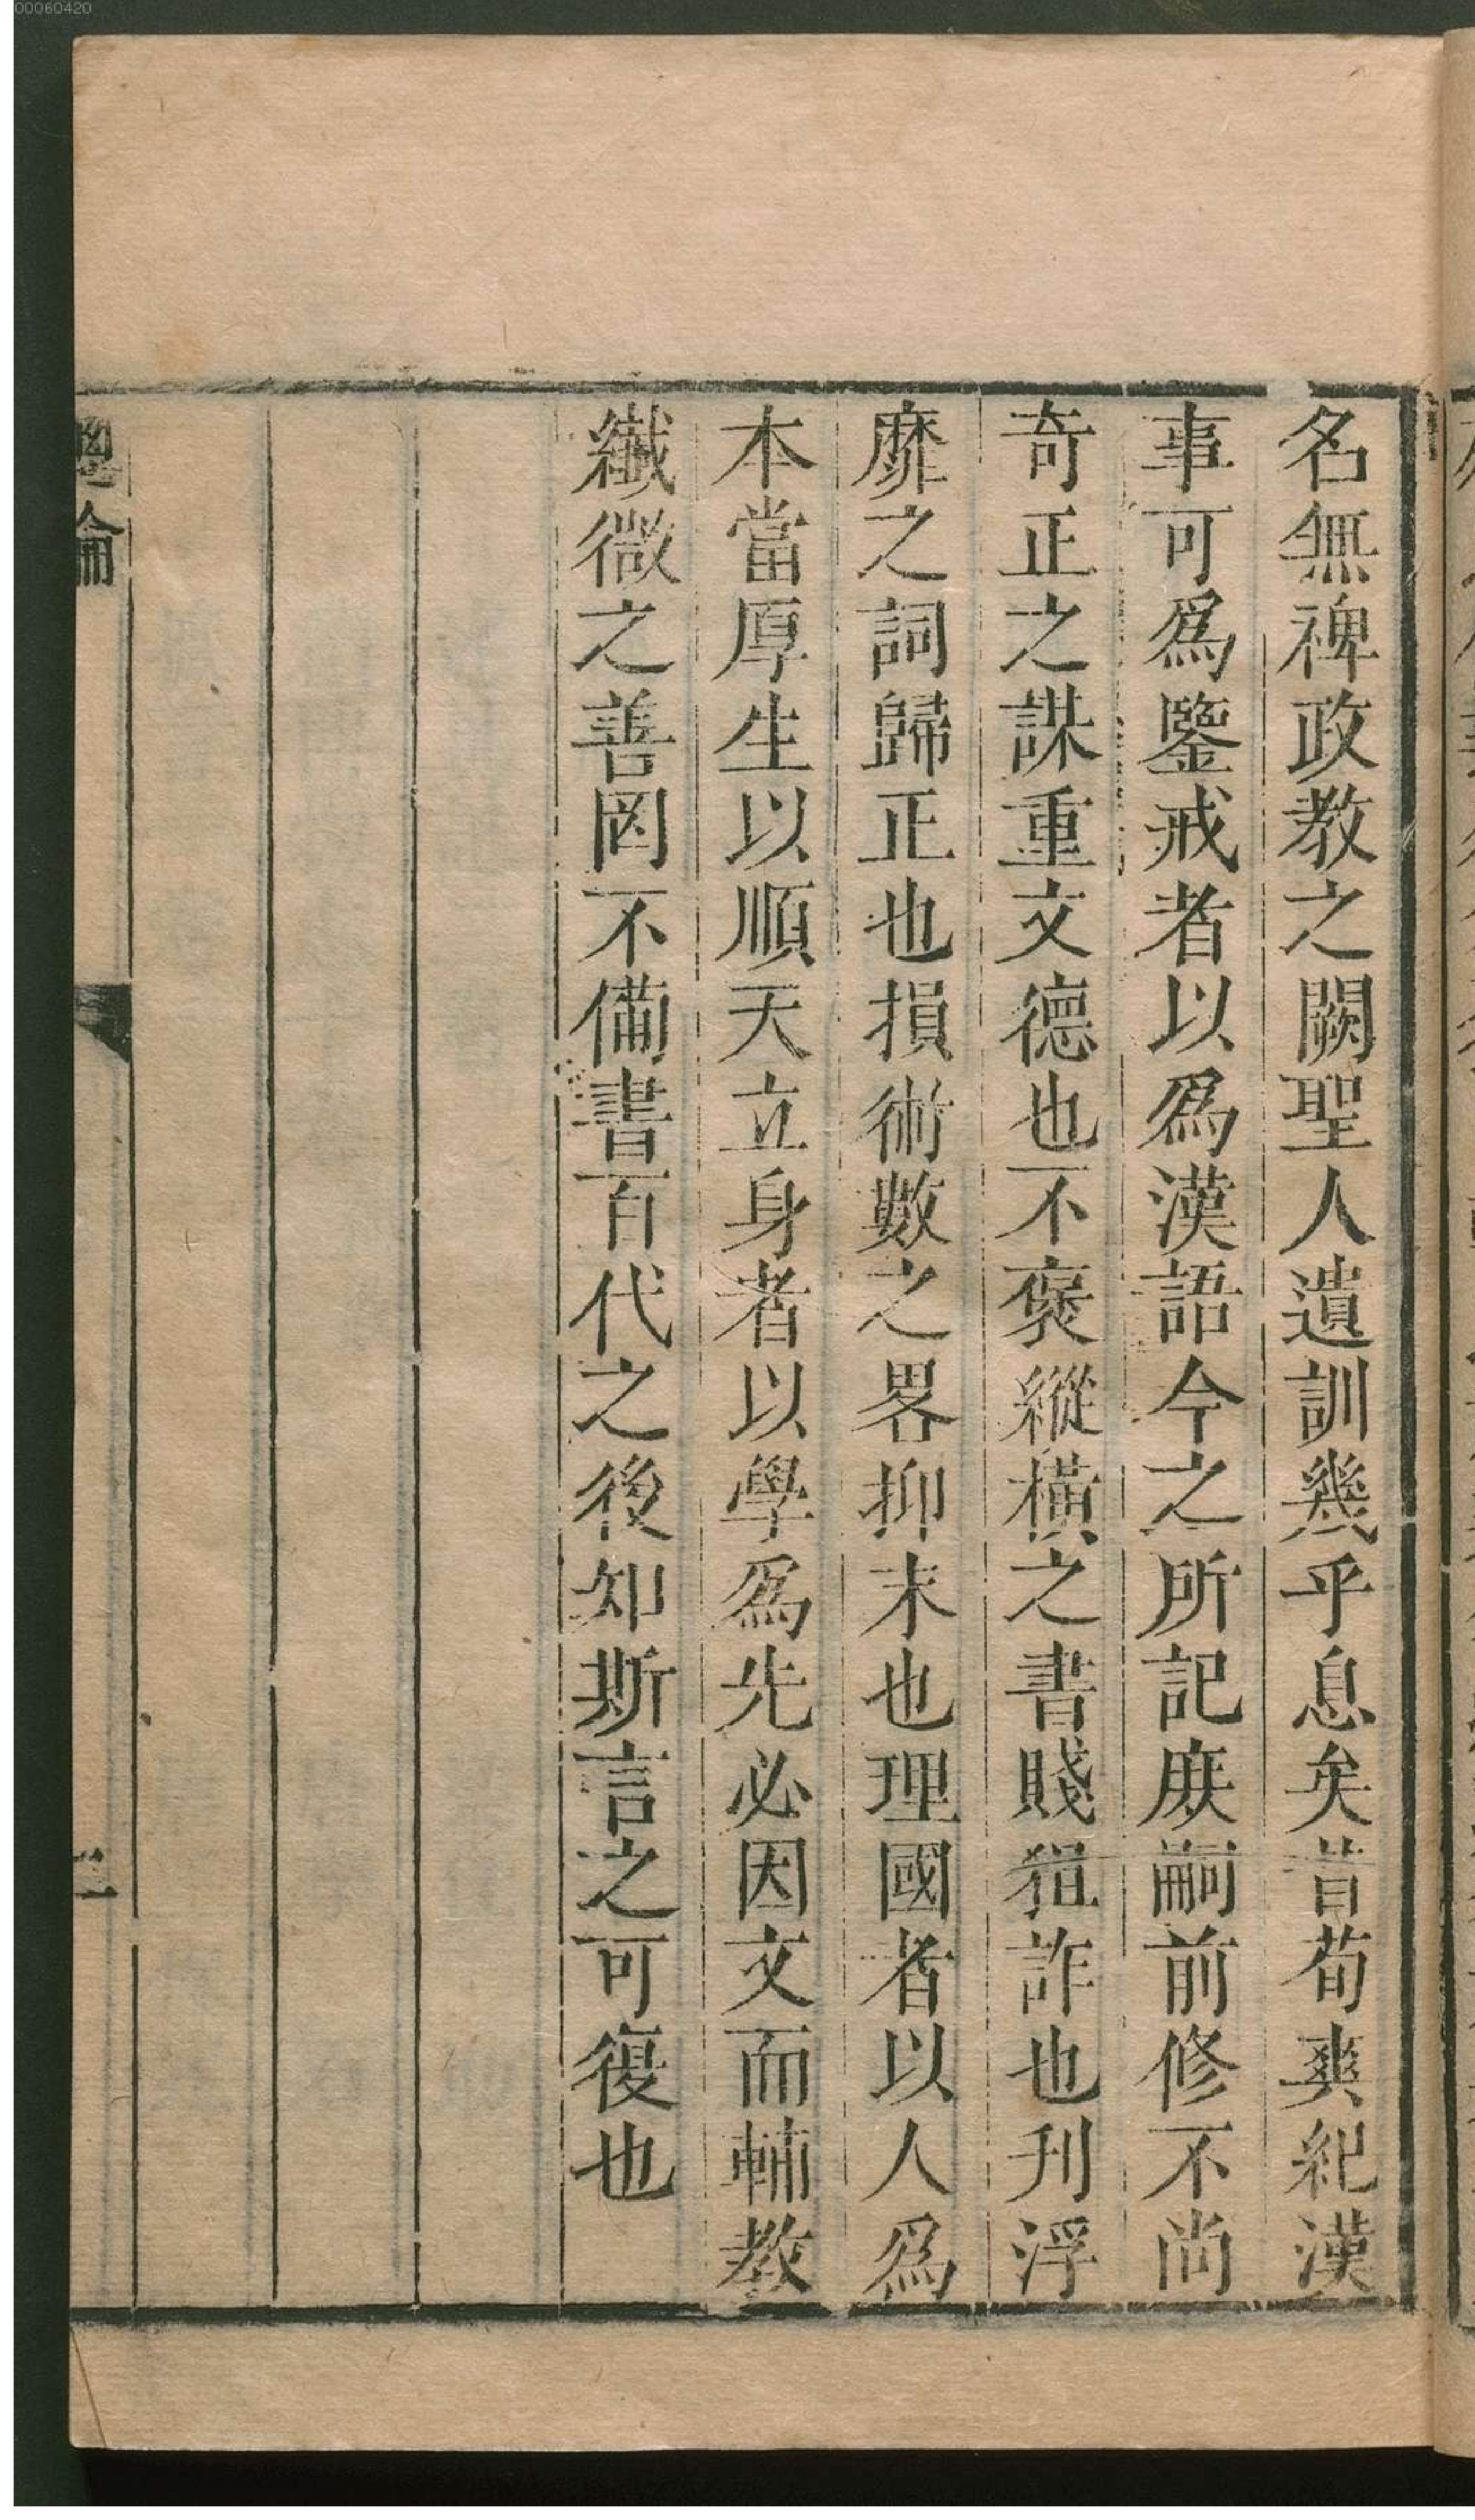 名無禆政教之闕聖人遺訓幾乎息矣昔荀爽紀漢
事可爲鑒戒者以爲漢語今之所記庻嗣前修不尚
奇正之謀重文德也不褒縱橫之書賤狙詐也刋浮
靡之詞歸正也損術數之畧抑末也理國者以人爲
本當厚生以順天立身者以學爲先必因文而輔教
纎微之善罔不備書百代之後知斯言之可復也
總論
二
00060420